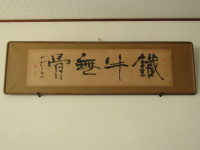 鐵牛無骨